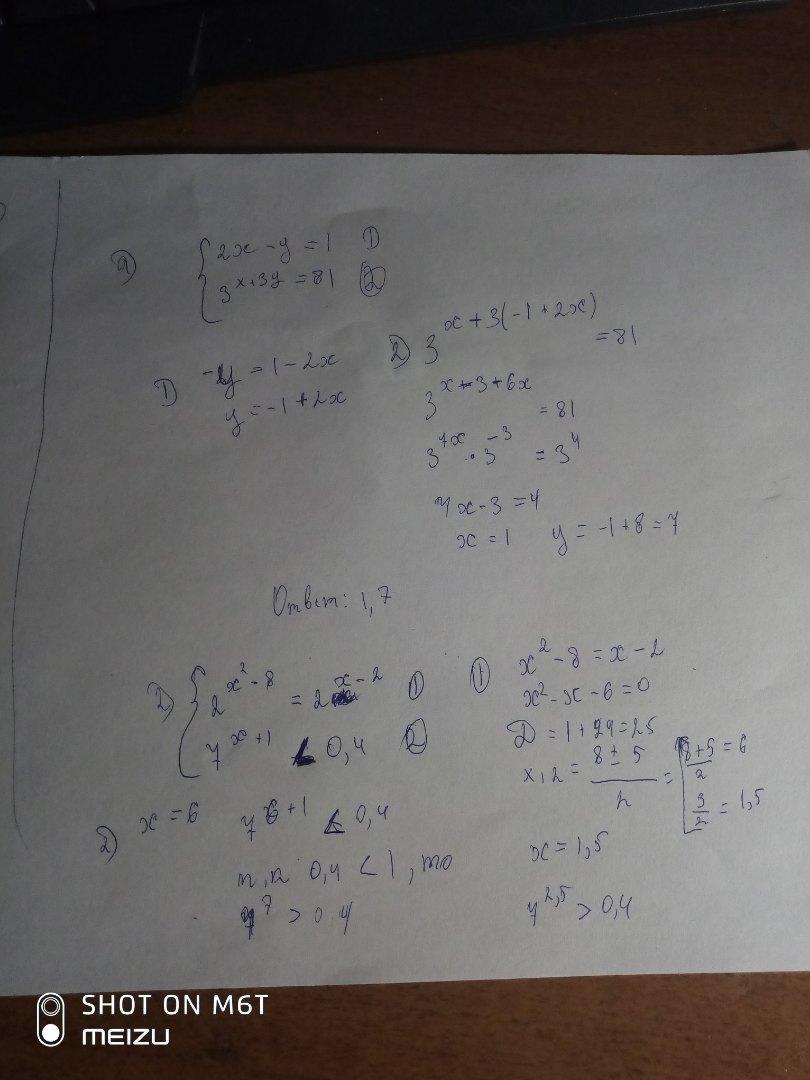 1) { 2x - y = 1 ①
3^{x+3y} = 81 ②
1) -y = 1 - 2x
y = -1 + 2x
2) 3^{x+3(-1+2x)} = 81
3^{x-3+6x} = 81
3^{7x} · 3^{-3} = 3^4
7x - 3 = 4
x = 1 y = -1 + 8 = 7
Ответ: 1, 7
2) { 2^{x²-8} = 2^{x-2} ①
7^{x+1} < 0,4 ②
① x² - 8 = x - 2
x² - x - 6 = 0
D = 1 + 24 = 25
x1,2 = (8 ± 5)/2 = [ (8+5)/2 = 6
3/2 = 1,5
2) x = 6 7^{6+1} < 0,4
т,к 0,4 < 1, то
7^7 > 0 4
x = 1,5
7^{2,5} > 0,4
SHOT ON M6T
MEIZU